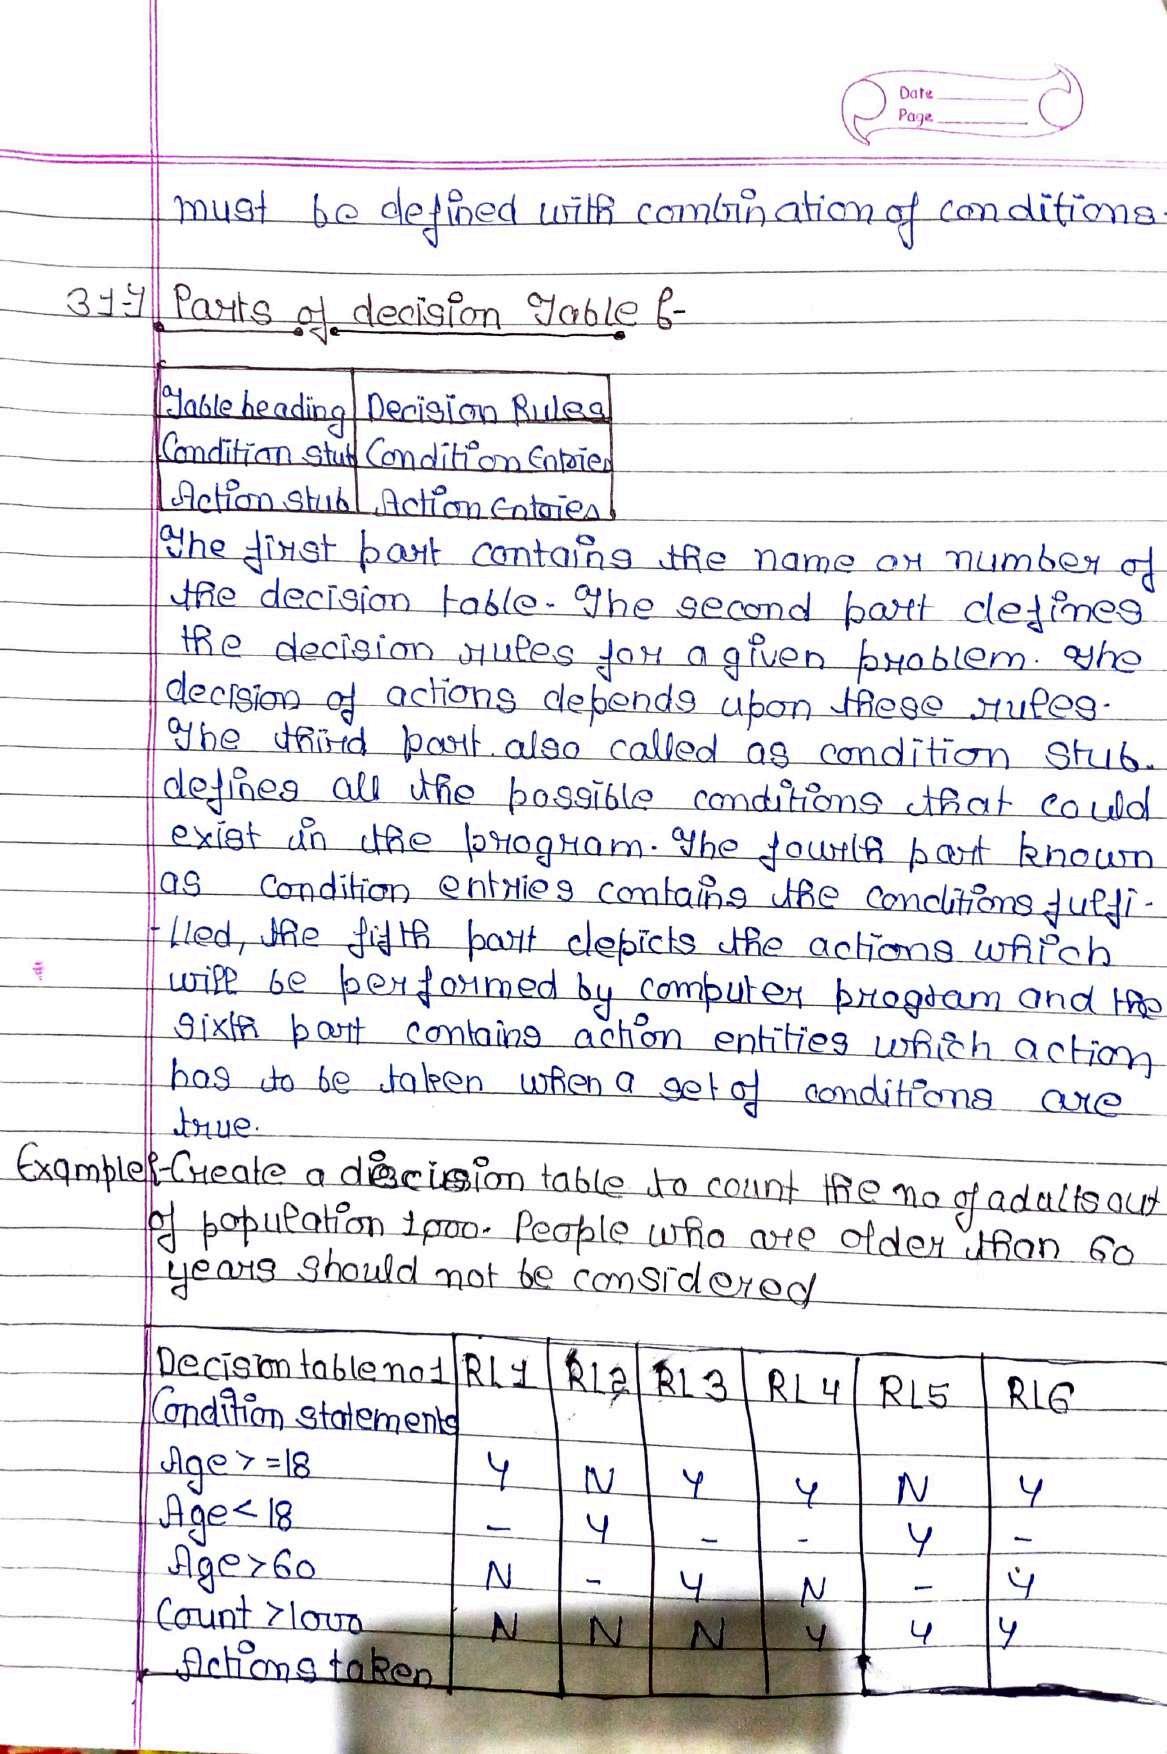 Date
Page
must be defined with combination of conditions.
Parts of decision Table :-
Table heading Decision Rules
Condition Stub Condition Entries
Action Stub Action Entries
The first part contains the name or number of
the decision table. The second part defines
the decision rules for a given problem. The
decision of actions depends upon these rules.
The third part also called as condition stub.
defines all the possible conditions that could
exist in the program. The fourth part known
as condition entries contains the conditions fulfi-
-lled, the fifth part depicts the actions which
will be performed by computer program and the
sixth part contains action entities which action
has to be taken when a set of conditions are
true.
Example:- Create a decision table to count the no of adults out
of population 1000. People who are older than 60
years should not be considered
Decision table no 1 RL1 RL2 RL3 RL4 RL5 RL6
Condition statements
Age >=18 Y N Y Y N Y
Age < 18 - Y - - Y -
Age > 60 N - Y N - Y
Count > 1000 N N N Y Y Y
Actions taken